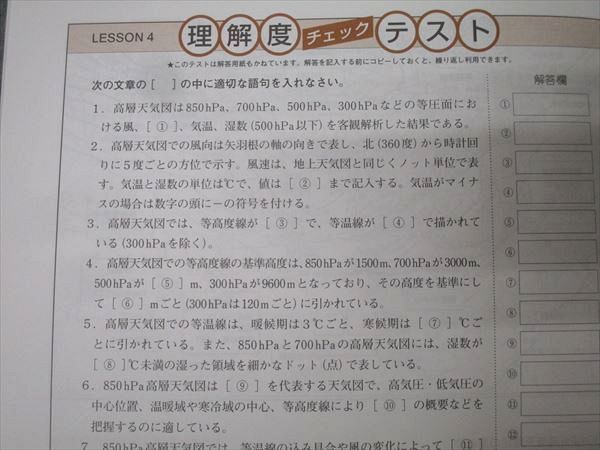 LESSON 4
理解度チェックテスト
★このテストは解答用紙もかねています。解答を記入する前にコピーしておくと、繰り返し利用できます。
次の文章の［　］の中に適切な語句を入れなさい。
解答欄
1．高層天気図は850hPa、700hPa、500hPa、300hPaなどの等圧面にお
ける風、［ ① ］、気温、湿数(500hPa以下)を客観解析した結果である。
2．高層天気図での風向は矢羽根の軸の向きで表し、北(360度)から時計回
りに5度ごとの方位で示す。風速は、地上天気図と同じくノット単位で表
す。気温と湿数の単位は℃で、値は［ ② ］まで記入する。気温がマイナ
スの場合は数字の頭に－の符号を付ける。
3．高層天気図では、等高度線が［ ③ ］で、等温線が［ ④ ］で描かれて
いる(300hPaを除く)。
4．高層天気図での等高度線の基準高度は、850hPaが1500m、700hPaが3000m、
500hPaが［ ⑤ ］m、300hPaが9600mとなっており、その高度を基準にし
て［ ⑥ ］mごと(300hPaは120mごと)に引かれている。
5．高層天気図での等温線は、暖候期は3℃ごと、寒候期は［ ⑦ ］℃ご
とに引かれている。また、850hPaと700hPaの高層天気図には、湿数が
［ ⑧ ］℃未満の湿った領域を細かなドット(点)で表している。
6．850hPa高層天気図は［ ⑨ ］を代表する天気図で、高気圧・低気圧の
中心位置、温暖域や寒冷域の中心、等高度線により［ ⑩ ］の概要などを
把握するのに適している。
7．850hPa高層天気図では、等温線の込み具合や風の変化によって［ ⑪ ］
①
②
③
④
⑤
⑥
⑦
⑧
⑨
⑩
⑪
⑫